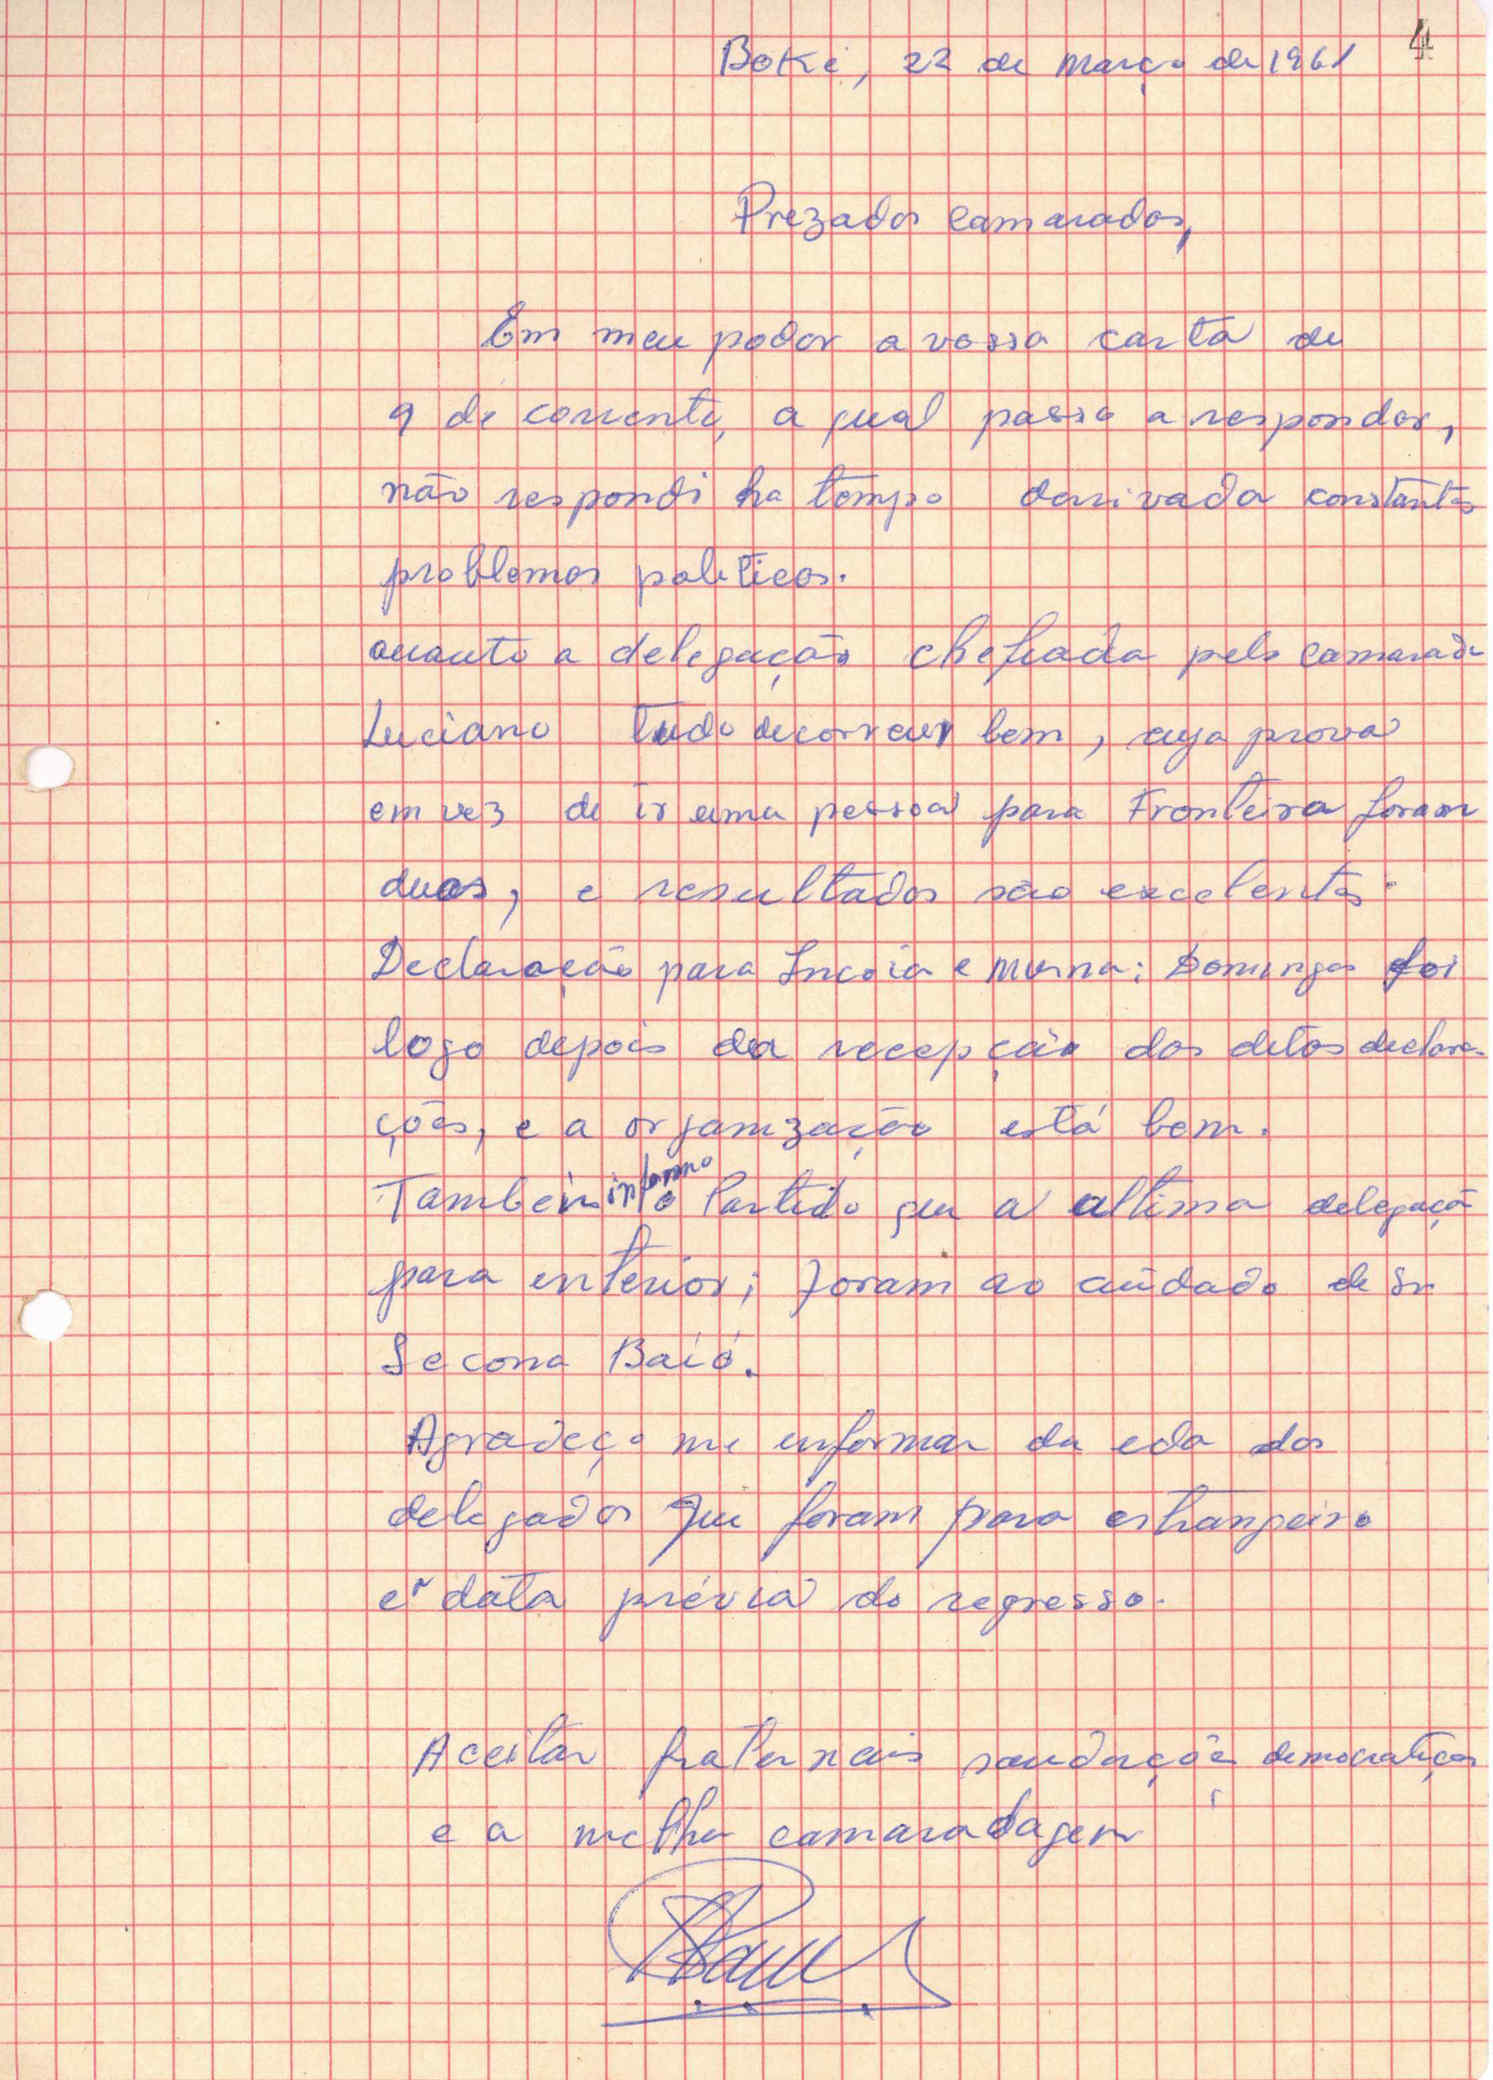 4
Boké, 22 de março de 1961
Prezados camaradas,
Em meu poder a vossa carta de
9 de corrente, a qual passo a responder,
não respondi ha tempo derivada constantes
problemas politicos.
quanto a delegação chefiada pelo camarada
Luciano tudo decorreu bem, cuja prova
em vez de ir uma pessoa para Fronteira foram
duas, e resultados são excelentes.
Declaração para e : Domingos foi
logo depois da recepção das ditas declara-
ções, e a organização está bem.
Tambem informo o Partido que a ultima delegação
para interior; foram ao cuidado de Sr
Secona Baió.
Agradeço me informar da eda dos
delegados que foram para estrangeiro
e a data prévia do regresso.
Aceitar fraternais saudações democraticas
e a melhor camaradagem